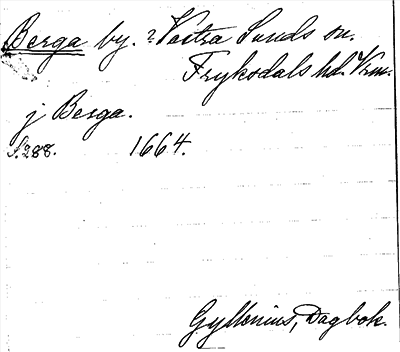 Berga by. ? Västra Sunds sn.
Fryksdals hd. Vrm.
j Berga.
S. 288. 1664.
Gyllenius, Dagbok.